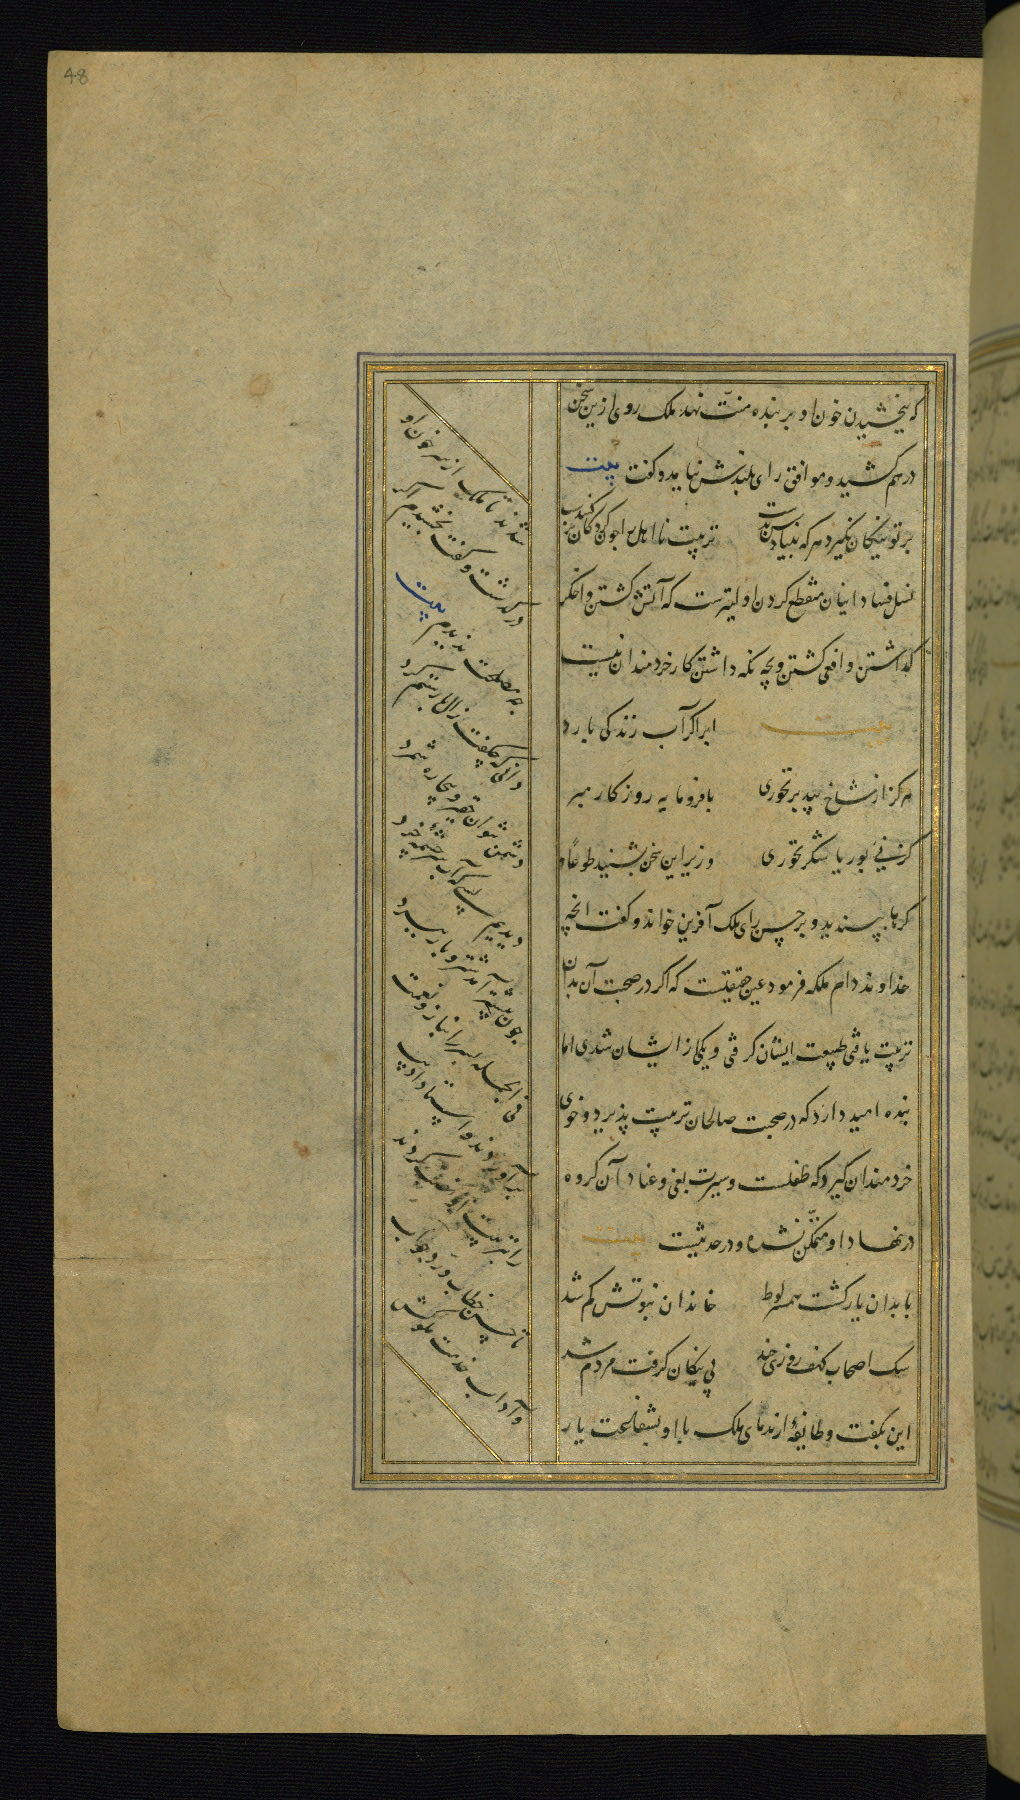 48
که ببخشیدن خون او بر بنده منت نهد ملک روی ازین سخن
درهم کشید و موافق رای بلندش نیامد و گفت بیت
پرتو نیکان نگیرد هرکه بنیادش بدست تربیت نااهل را چون گردکان بر گنبدست
نسل فساد اینان منقطع کردن اولیترست که آتش کشتن و اخگر
گذاشتن و افعی کشتن و بچه نگه داشتن کار خردمندان نیست
بیت ابر اگر آب زندگی بارد
هرگز از شاخ بید بر نخوری با فرومایه روزگار مبر
کز نی بوریا شکر نخوری وزیر این سخن بشنید طوعا و
کرها بپسندید و بر حسن رای ملک آفرین خواند و گفت آنچه
خداوند دام ملکه فرمود عین حقیقتست که اگر در صحبت آن بدان
تربیت یافتی طبیعت ایشان گرفتی و یکی از ایشان شدی اما
بنده امید دارد که در صحبت صالحان تربیت پذیرد و خوی
خردمندان گیرد که طفلست و سیرت بغی و عناد آن گروه
در نهاد او متمکن نشده و در حدیثست بیت
با بدان یار گشت همسر لوط خاندان نبوتش گم شد
سگ اصحاب کهف روزی چند پی نیکان گرفت مردم شد
این بگفت و طایفهٔ از ندمای ملک با او بشفاعت یار
شدند تا ملک از سر خون او
درگذشت و گفت بخشیدم اگرچه
مصلحت ندیدم بیت
دانی که چه گفت زال با رستم گرد
دشمن نتوان حقیر و بیچاره شمرد
دیدیم بسی که آب سرچشمه خرد
چون بیشتر آمد شتر و بار ببرد
فی الجمله پسر را بناز و نعمت
برآوردند و استاد ادیب
را بتربیت او نصب کردند
تا حسن خطاب و رد جواب
و آداب خدمت ملوکش